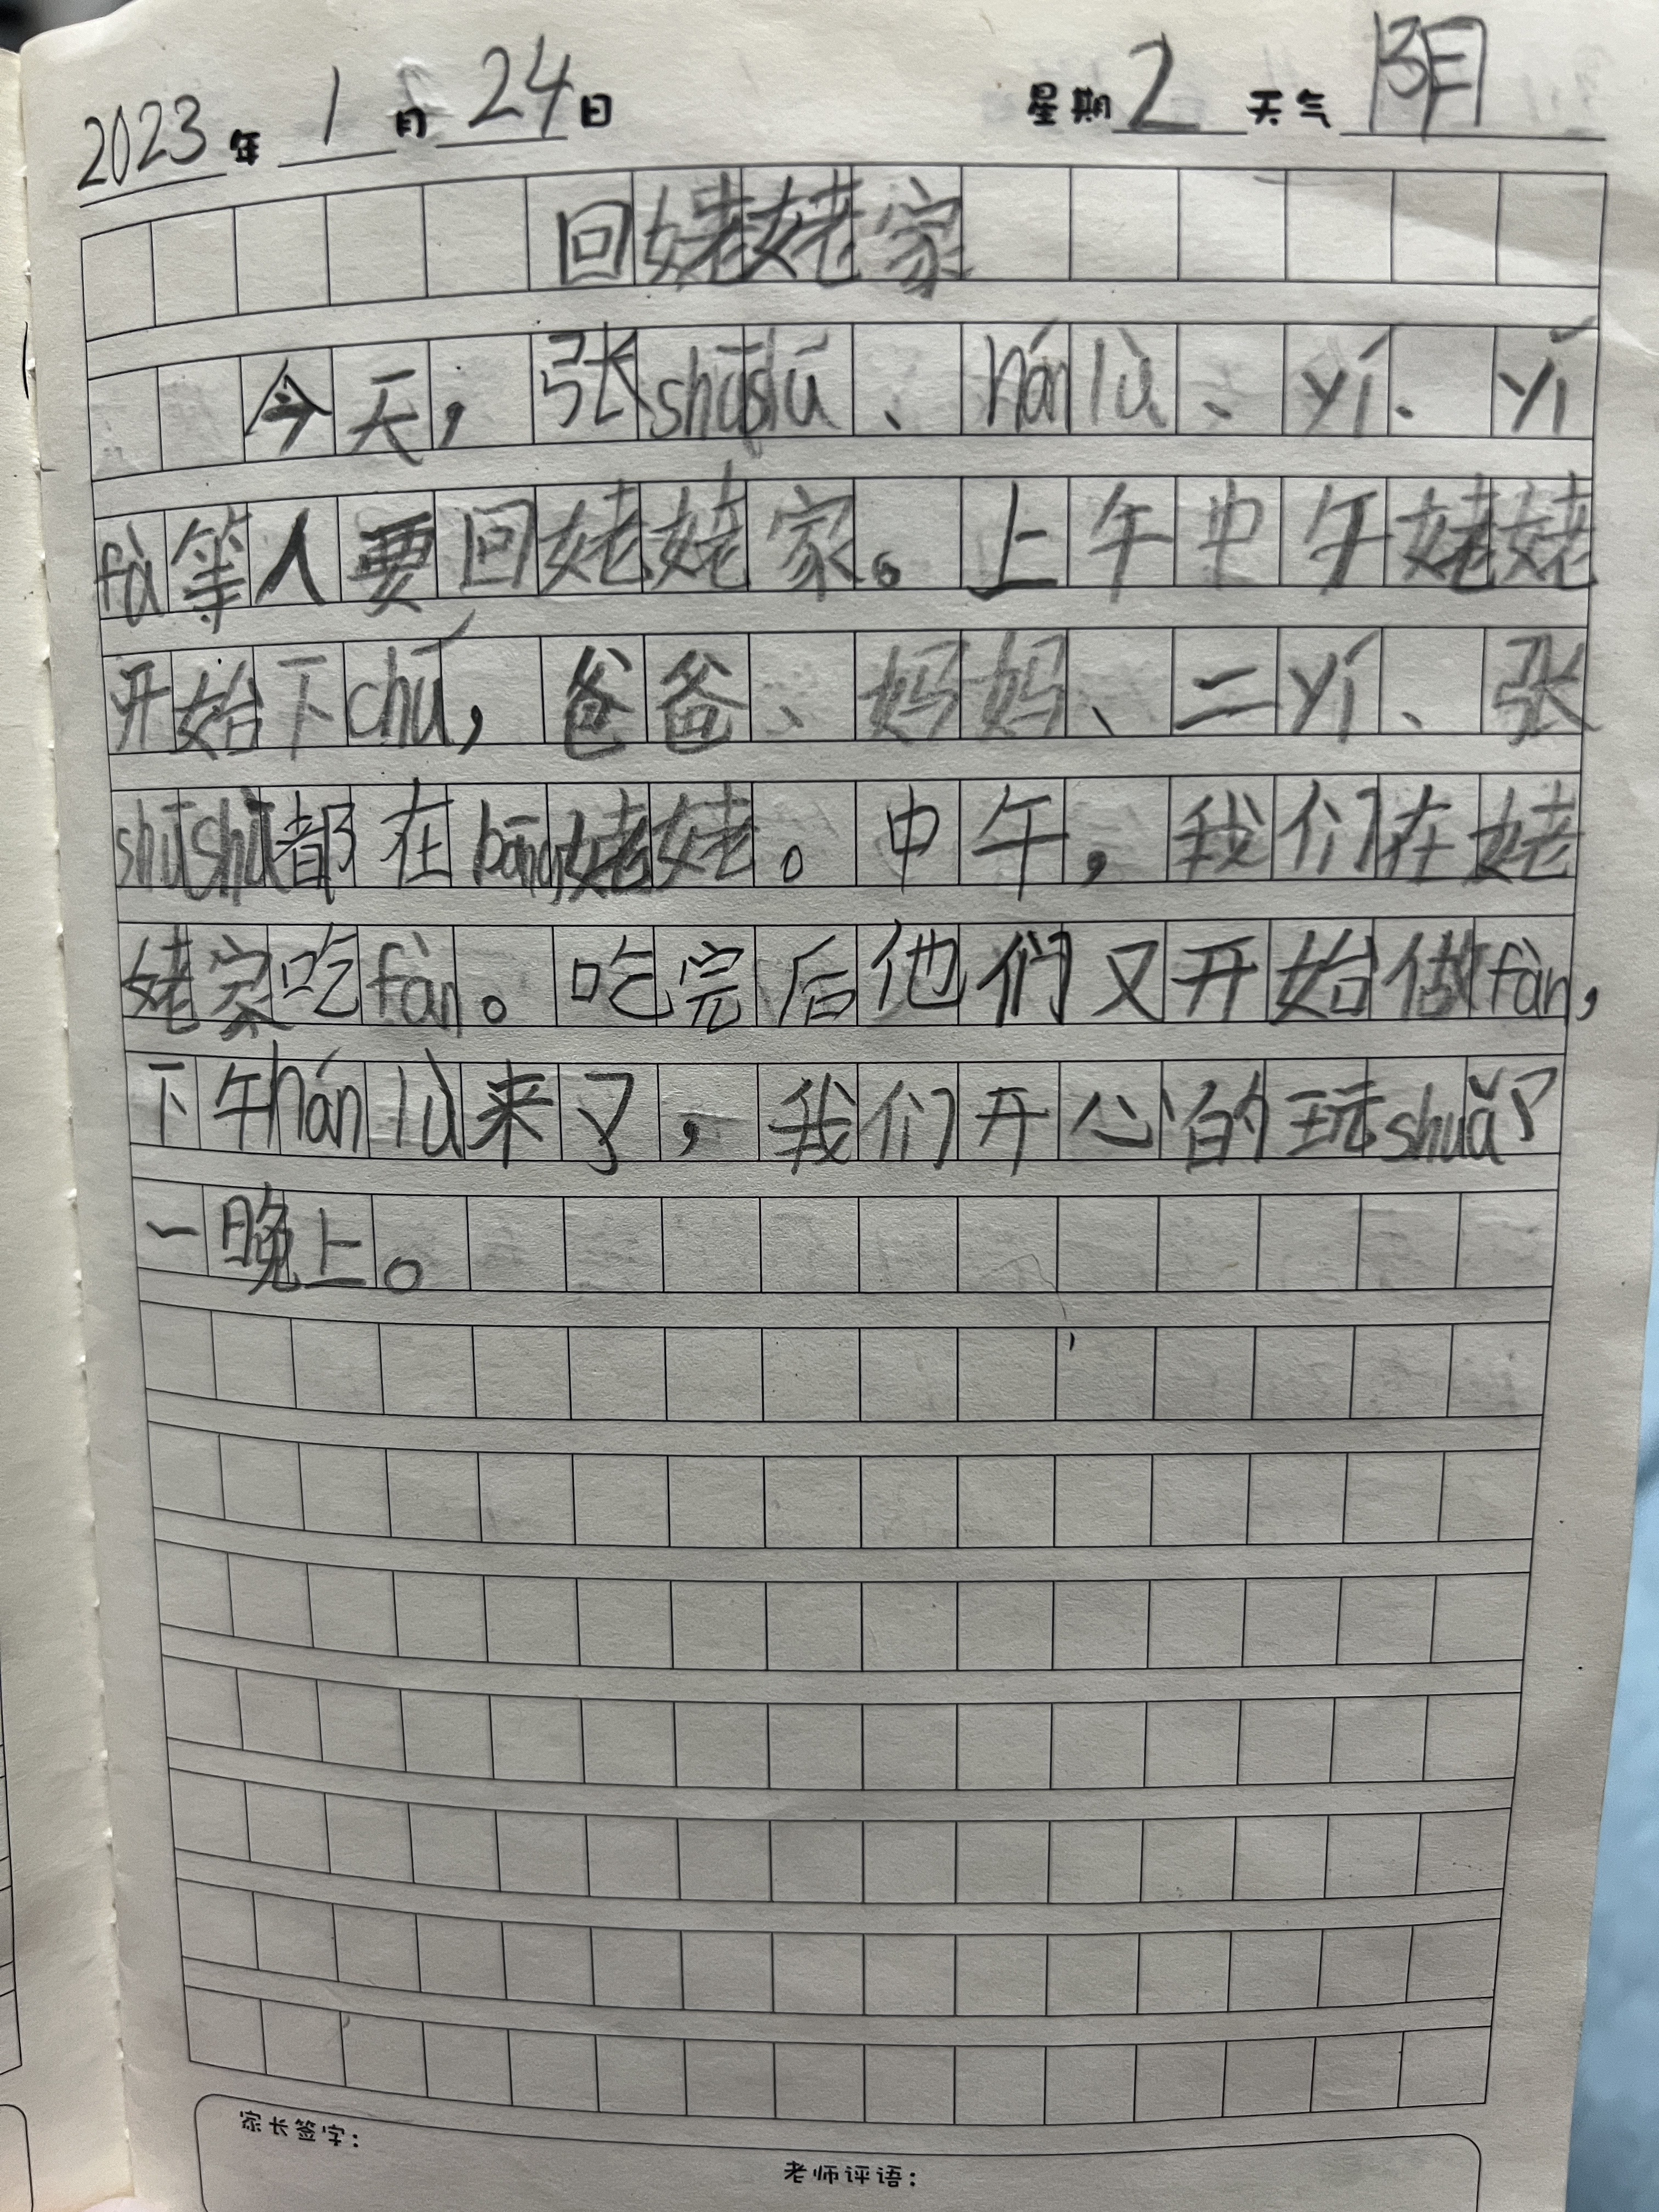 2023年1月24日 星期2 天气阴
回姥姥家
今天，张shūshū、hán lù、yí、yí
fù等人要回姥姥家。上午中午姥姥
开始下chú，爸爸、妈妈、二yí、张
shūshū都在bāng姥姥。中午，我们在姥
姥家吃fàn。吃完后他们又开始做fàn，
下午hán lù来了，我们开心的玩shuǎ了
一晚上。
家长签字：
老师评语：